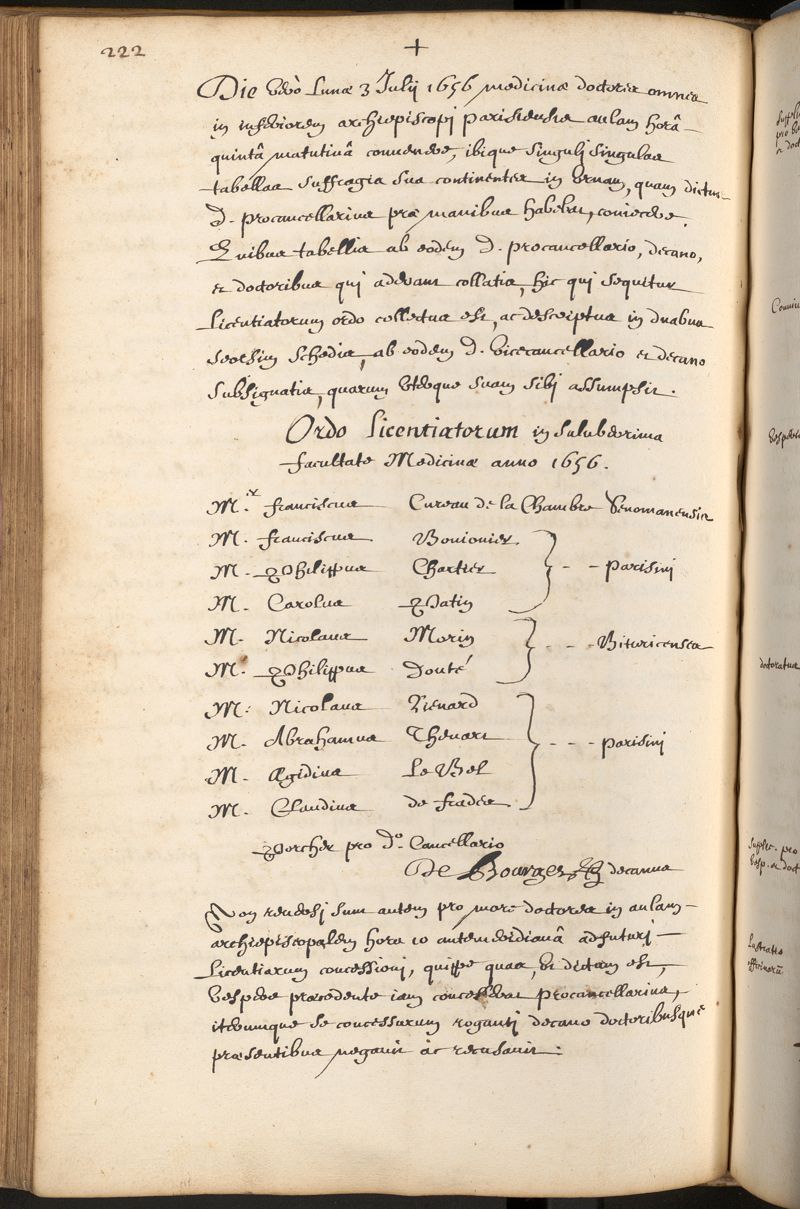 222
+
Die verò Lunæ 3 Julij 1656 medicinæ doctores omnes
in inferiorem archiepiscopj parisiensis aulam horâ
quintâ matutinâ convenere, ibique singulj singulas
tabellas suffragia sua continentes in urnam, quam dictus
D. procancellarius præ manibus habebat, coniecere.
Quibus tabellis ab eodem D. procancellario, decano,
et doctoribus quj aderant collatis, hic quj sequitur
Licentiatorum ordo collectus est, ac descriptus in duabus
seorsim schedis, ab eodem D. vicecancellario et decano
subsignatis, quarum uterque suam sibj assumpsit.
Ordo Licentiatorum in saluberrima
facultate Medicinæ anno 1656.
M.r Franciscus Cureau de la Chambre Cenomanensis
M. Franciscus Bonionier
M. Philippus Chartier - - parisinj
M. Carolus Patin
M. Nicolaus Morin - - - Bituricenses
M. Philippus Douté
M. Nicolaus Lienard
M. Abrahamus Thevart - - - parisinj
M. Ægidius Le Bel
M. Claudius de Frades
Porcher pro D.o Cancellario
De Bourges decanus
Non reversj sunt autem pro more doctores in aulam
archiepiscopalem hora 10 antemeridianâ adfuturj
Licentiarum concessionj, quippe quas, ut dictum est,
vespere præcedente iam concesserat procancellarius,
iterumque se concessurum rogantj decano doctoribusque
præsentibus negavit ac recusavit.
doctoratus